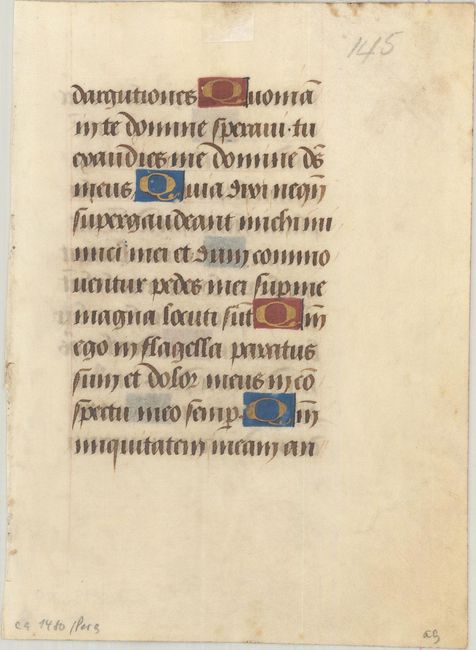 145
dargutiones Quoniā
in te domine speraui·tu
exaudies me domine ds̄
meus Quia dixi neqn̄
supergaudeant michi ini
mici mei et dum commo
uentur pedes mei sup me
magna locuti sūt Qm̄
ego in flagella paratus
sum et dolor meus in cō
spectu meo semp. Qm̄
iniquitatem meam an
ca 1480 / Perg